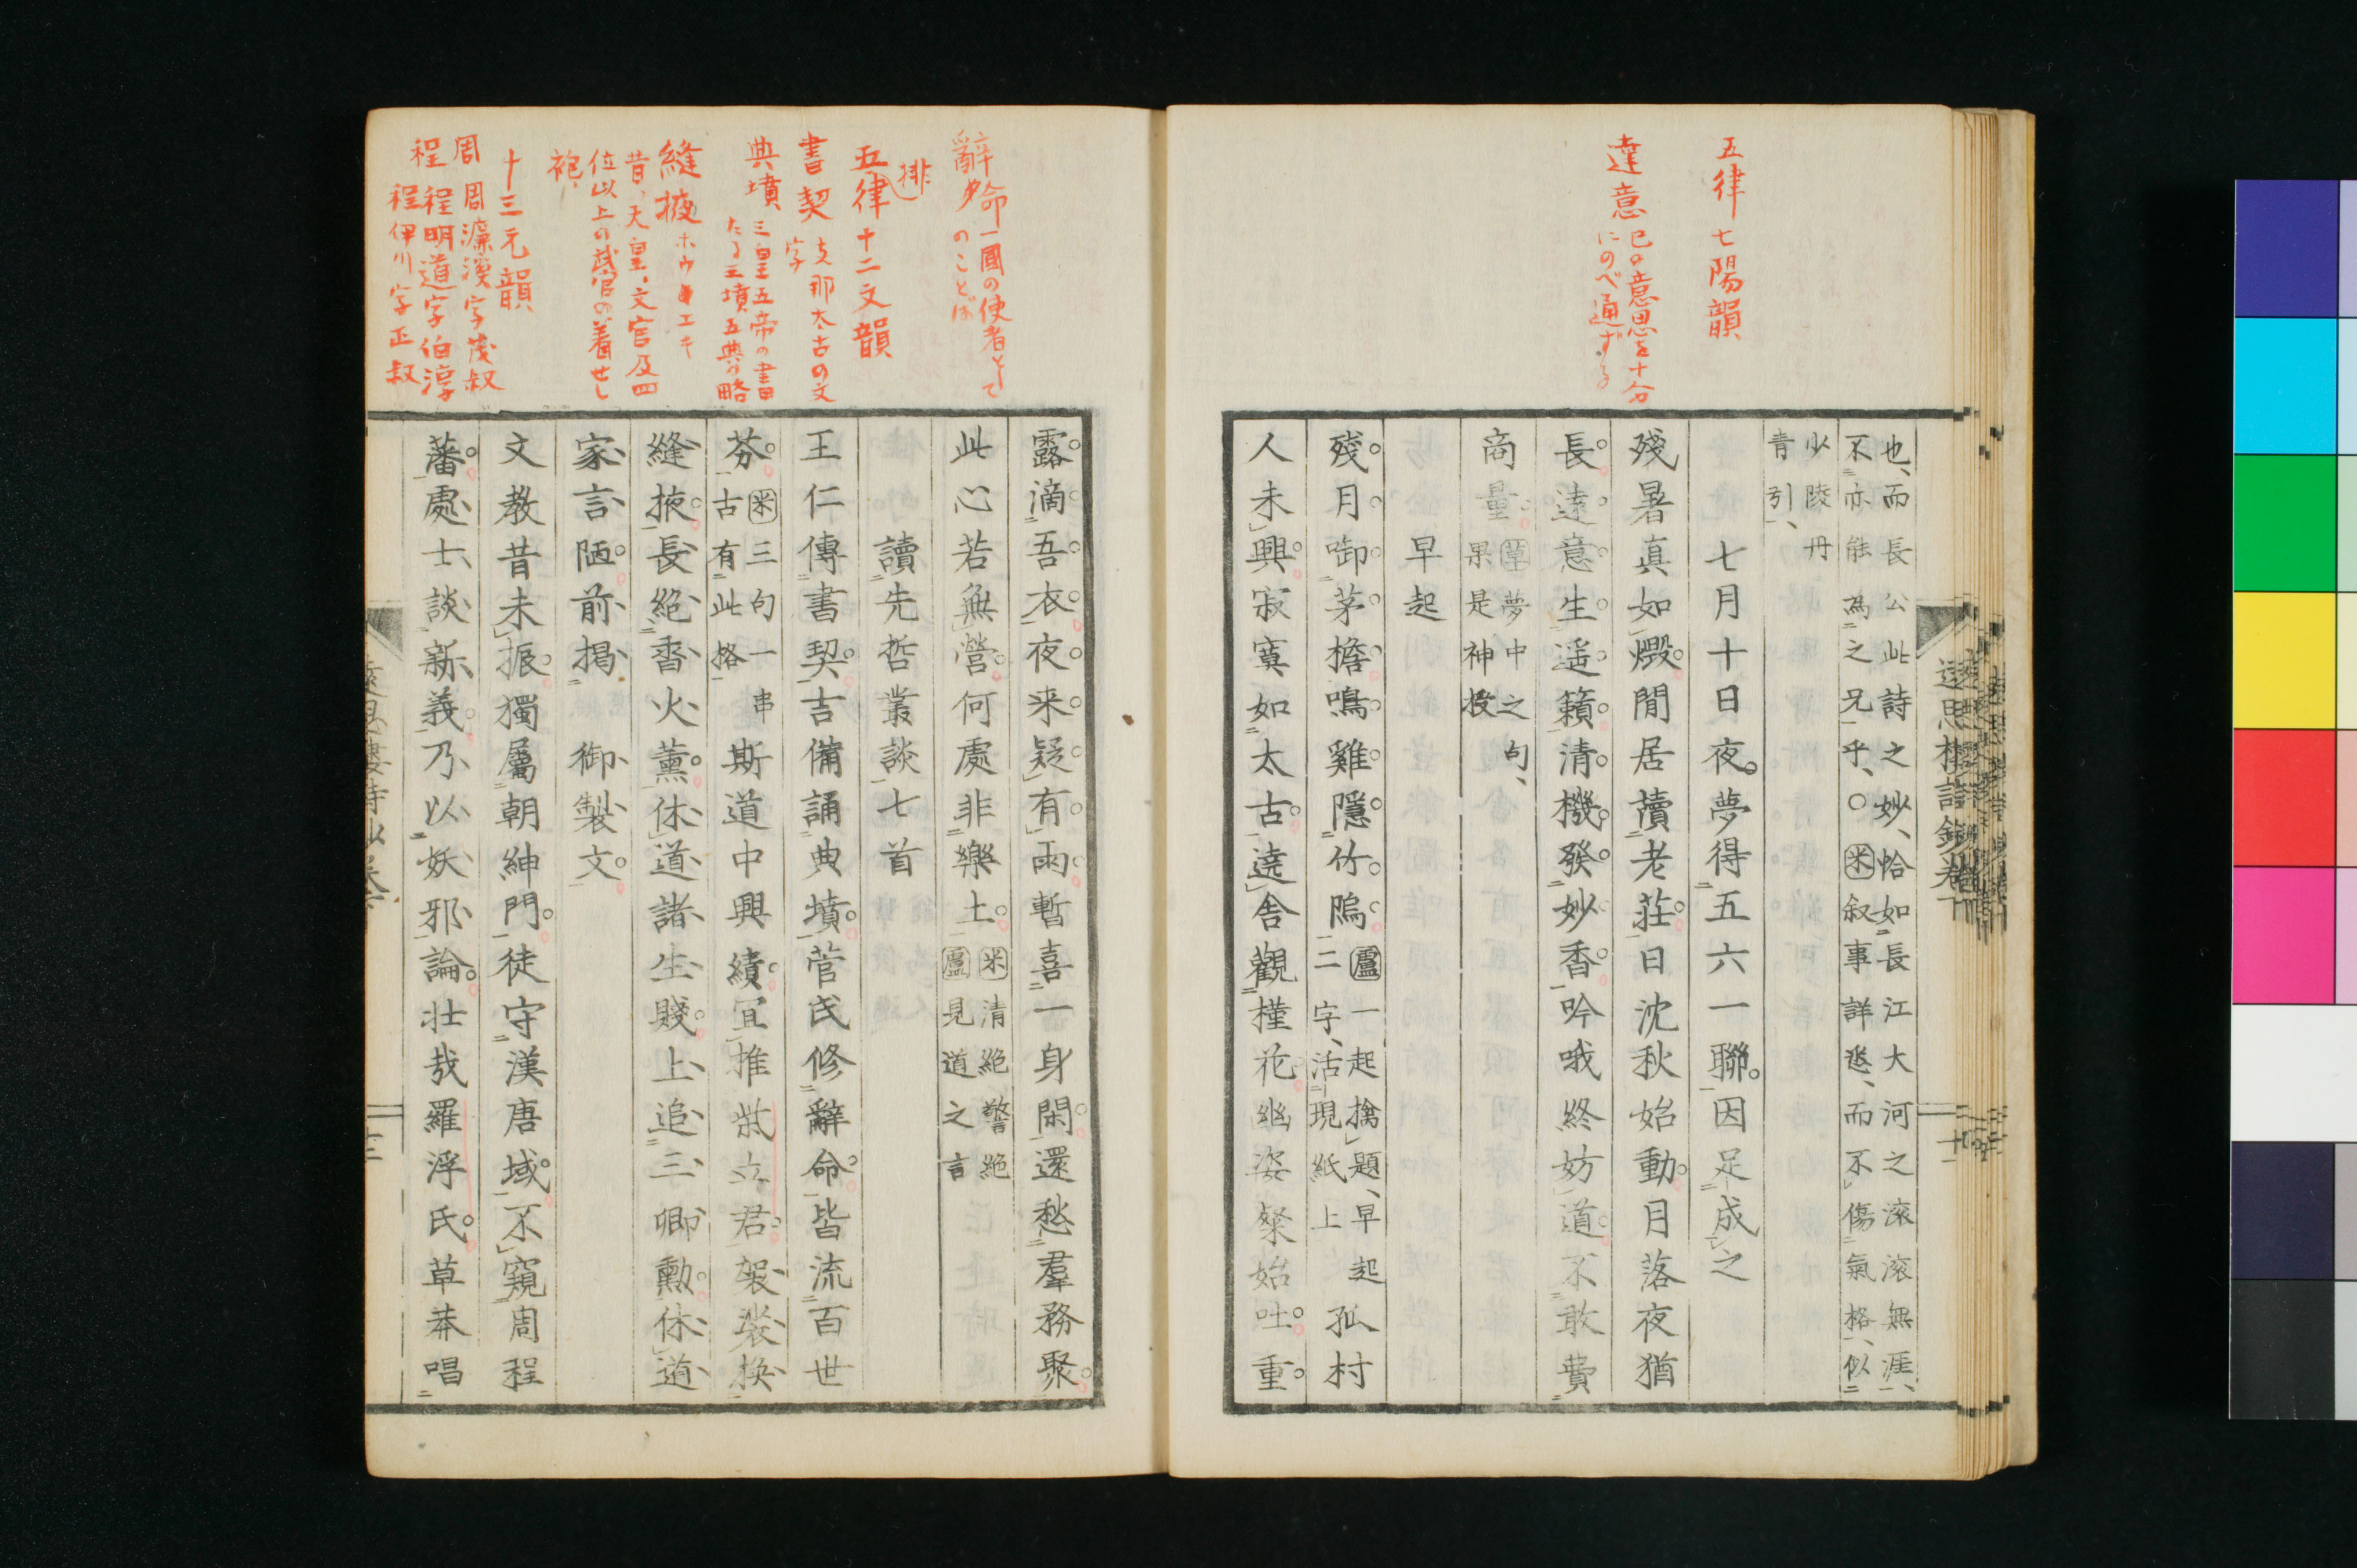 五律 七陽韻
達意 己の意思を十分
にのべ通ずる
遠思樓詩鈔卷下
十一
也、而長公此詩之妙、恰如長江大河之滾滾無涯、
不亦能為之兄乎、○米叙事詳悉、而不傷氣格、似
少陵丹
青引、
七月十日夜。夢得五六一聯。因足成之
殘暑真如燬。閒居讀老莊。日沈秋始動。月落夜猶
長。達意生遥籟。清機發妙香。吟哦終妨道。不敢費
商量。草夢中之句、
果是神授
早起
殘月啣茅檐。鳴雞隱竹塢。盧一起擒題、早起
二字、活現紙上
孤村
人未興。寂寞如太古。遶舍觀槿花。幽姿粲始吐。重
辭命 一國の使者として
のことば
排
五律 十二文韻
書契 支那太古の文
字
典墳 三皇五帝の書
たる三墳五典の略
縫掖 ホウエキ
昔、天皇、文官及四
位以上の武官の着せし
袍、
十三元韻
周 周濂溪字茂叔
程 程明道字伯淳
程伊川字正叔
露滴吾衣。夜来疑有雨。暫喜一身閑。還愁羣務聚。
此心若無營。何處非樂土。米清絶警絶
盧見道之言
讀先哲叢談七首
王仁傳書契。吉備誦典墳。菅氏修辭命。皆流百世
芬。米三句一串
古有此格
斯道中興績。宜推柴立君。袈裟換
縫掖。長絶香火薰。休道諸生賤。上追三卿勳。休道
家言陋。前揭御製文。
文教昔未振。獨屬朝紳門。徒守漢唐域。不窺周程
藩。處士談新義。乃以妖邪論。壮哉羅浮氏。草莽唱